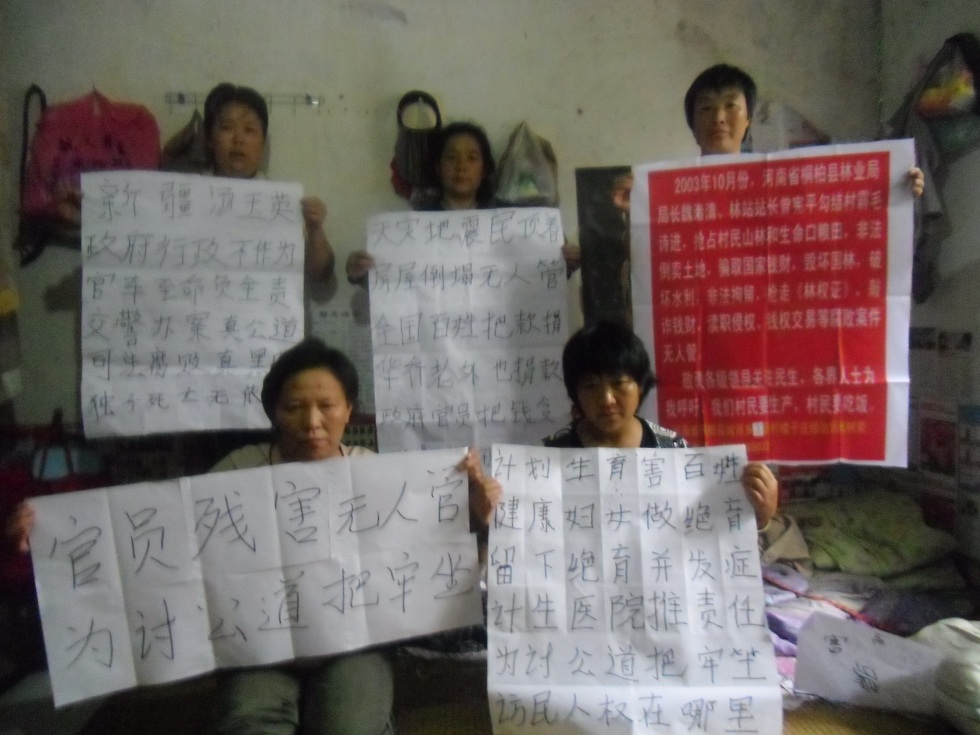 新疆汤玉英
政府行政不作为
官车至命负全责
交警办案真公道
司法腐败真黑
独子死亡无依
天灾地震民顶着
房屋倒塌无人管
全国百姓把款捐
华侨老外也捐款
政府官员把钱贪
2003年10月份，河南省桐柏县林业局
局长魏湘清、林站站长曾宪平勾结村霸毛
诗进，抢占村民山林和生命口粮田，非法
倒卖土地，骗取国家钱财，毁坏国林，破
坏水利，非法拘留，抢走《林权证》，敲
诈钱财，渎职侵权，钱权交易等腐败案件
无人管，
敬请各级领导关注民生，各界人士为
我呼吁，我们村民要生产，村民要吃饭，
官员残害无人管
为讨公道把牢坐
计划生育害百姓
健康妇女做绝育
留下绝育并发症
计生医院推责任
为讨公道把牢坐
访民人权在哪里